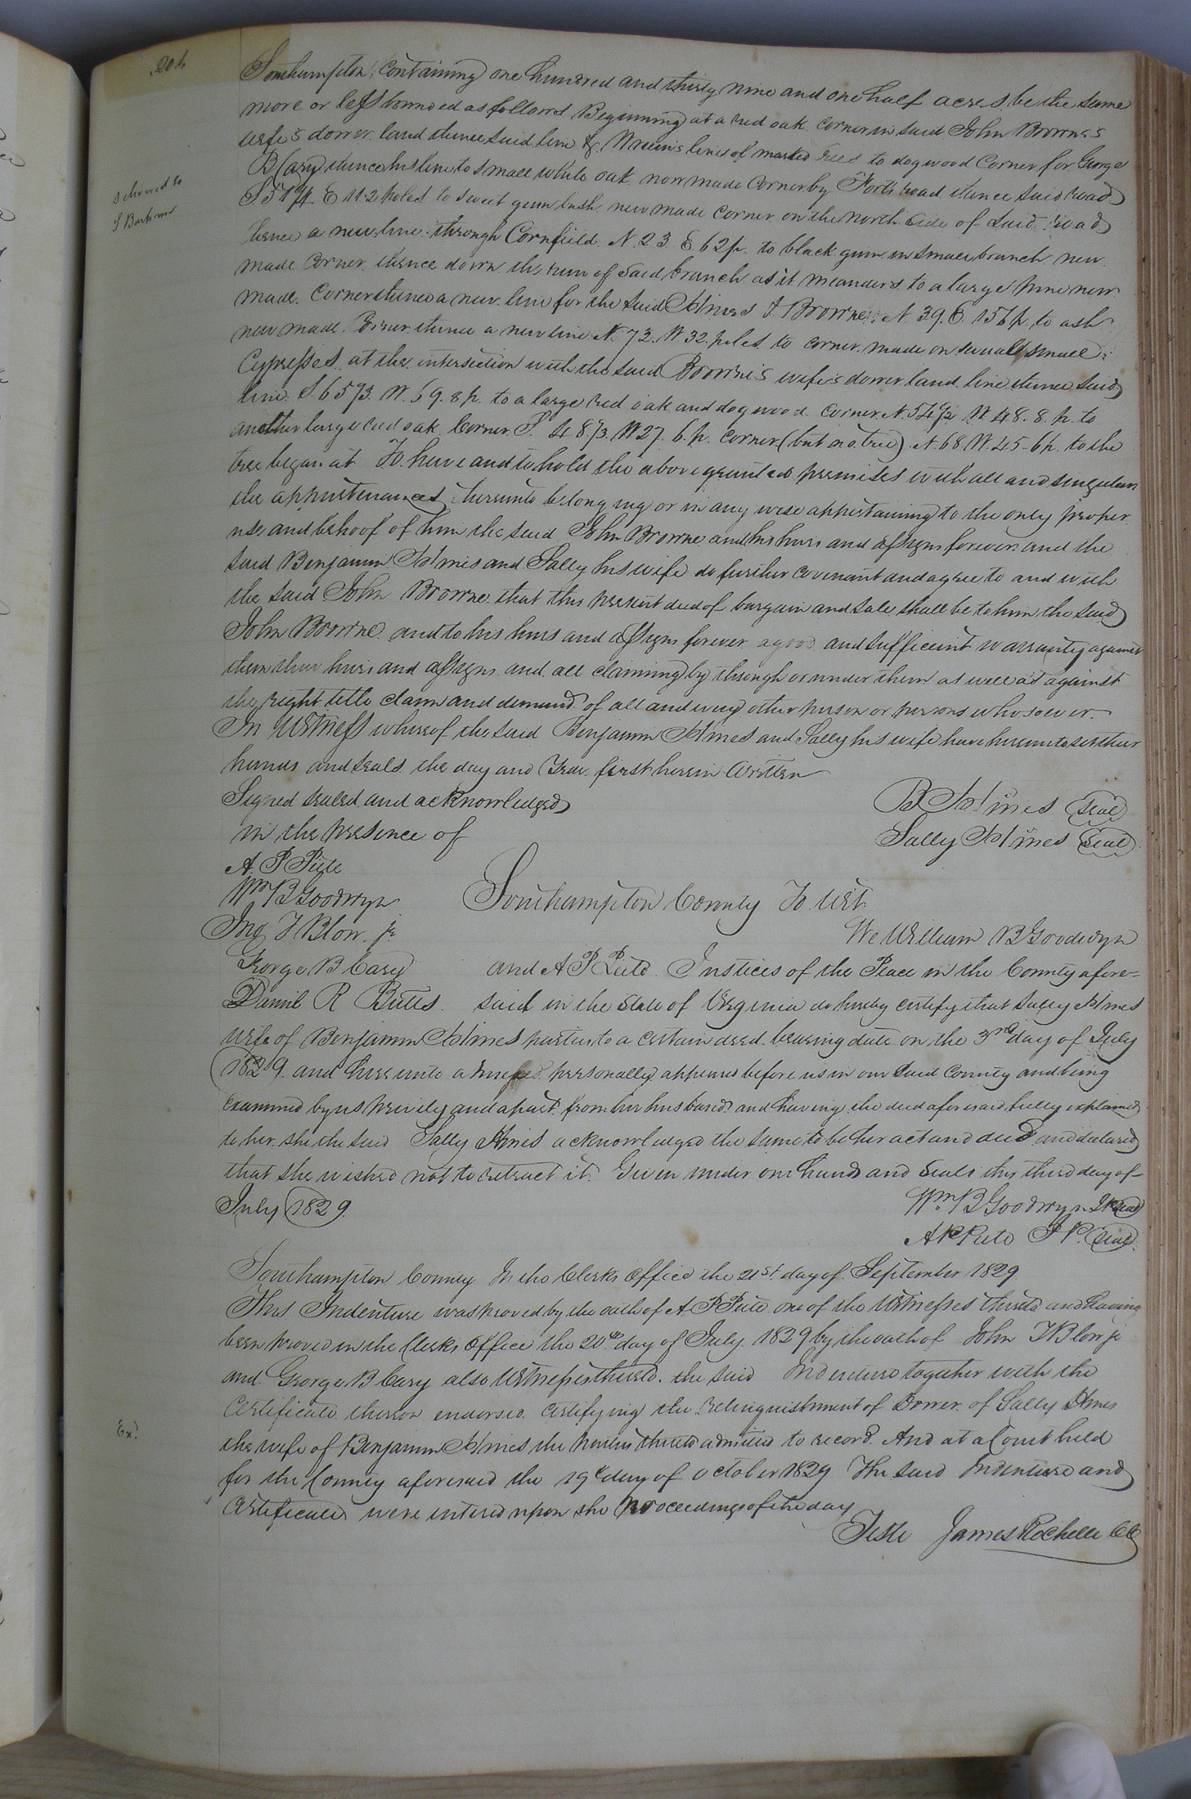 Southampton, Containing one hundred and thirty nine and one half acres, be the same
more or less bounded as follows Beginning at a red oak corner in said John Browne's
wife's dower land thence said line & lines of marked trees to dogwood Corner for George
B Cary thence his line to small white oak now made Corner by Forts road thence said road
delivered to
S 51 1/4 E 112 poles to sweet gum bush new made corner on the north side of said road
thence a new line through Cornfield N. 23 E 62 p. to black gum in small branch new
made Corner thence down the run of said branch as it meanders to a large pine new
made Corner thence a new line for the said Browne N 39 E. 156 p. to ash
new made Corner thence a new line N. 73. W 32 poles to corner made on several small
Cypresses at the intersection with the said Browne's wife's dower land line thence said
line S 65 1/3 W. 69. 8 p. to a large red oak and dogwood corner N. 54 1/2 W 48. 8 p. to
another large red oak Corner S 48 1/3 W 27. 6 p. corner (but no tree) N 68 W. 45-6 p. to the
tree began at To have and to hold the above granted premises with all and singular
the appurtenances thereunto belonging or in any wise appertaining to the only proper
use and behoof of him the said John Browne and his heirs and assigns forever and the
said Benjamin Holmes and Sally his wife do further covenant and agree to and with
the said John Browne that this present deed of bargain and sale shall be to him the said
John Browne and to his heirs and assigns forever a good and sufficient warranty against
them their heirs and assigns and all claiming by through or under them as well as against
the right title claim and demand of all and every other person or persons whosoever.
In Witness whereof the said Benjamin Holmes and Sally his wife have hereunto set their
hands and seals the day and Year first herein Written
Signed sealed and acknowledged B Holmes (Seal)
in the presence of Sally Holmes (Seal)
A. P Peete
Wm B Goodwyn Southampton County To Wit
Jno T Blow jr We William B Goodwyn
George B Cary and A P Peete Justices of the Peace in the County afore=
Daniel R Butts said in the State of Virginia do hereby certify that Sally Holmes
wife of Benjamin Holmes parties to a certain deed bearing date on the 3rd day of July
1829 and hereunto annexed personally appeared before us in our said County and being
examined by us privily and apart from her husband and having the deed aforesaid fully explained
to her she the said Sally Holmes acknowledged the same to be her act and deed and declared
that she wished not to retract it. Given under our hands and seals this third day of
July 1829. Wm B Goodwyn JP (Seal)
A P Peete J P. (Seal)
Southampton County In the Clerks Office the 21st day of September 1829
This Indenture was proved by the oath of A P Peete one of the Witnesses thereto and having
been proved in the Clerks Office the 20th day of July 1829 by the oath of John T Blow jr
and George B Cary also Witnesses thereto. the said Indenture together with the
Certificate thereon endorsed certifying the relinquishment of Dower of Sally Holmes
Ex.
the wife of Benjamin Holmes the parties thereto admitted to record And at a Court held
for the County aforesaid the 19th day of October 1829 The said Indenture and
Certificate were entered upon the proceedings of the day
Teste James Rochelle CC